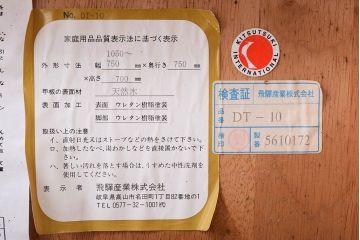 No. DT-10
家庭用品品質表示法に基づく表示
1050〜
外形寸法 幅 750 mm×奥行き 750 mm
×高さ 700 mm
甲板の表面材 天然木
表面加工 表面 ウレタン樹脂塗装
脚部 ウレタン樹脂塗装
取扱い上の注意
イ、直射日光又はストーブなどの熱をさけて下さい。
ロ、加熱したなべ、湯わかしなどを直接置かないで下さい。
ハ、著しい汚れを落とす場合は、うすめた中性洗剤を使用してください。
表示者 飛騨産業株式会社
岐阜県高山市名田町1丁目82番地の1
TEL 0577-32-1001㈹
KITSUTSUKI INTERNATIONAL
検査証 飛騨産業株式会社
品番 DT-10
検印 製番 5610172